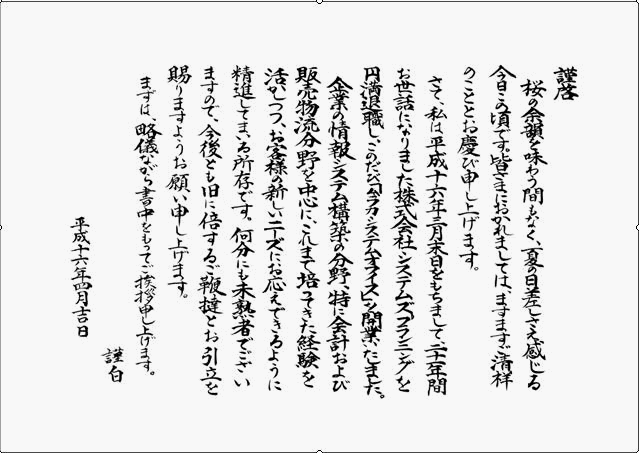 謹啓
桜の余韻を味わう間もなく、夏の日差しさえ感じる
今日この頃です。皆さまにおかれましては、ますますご清祥
のこととお慶び申し上げます。
さて、私は平成十六年三月末日をもちまして、二十一年間
お世話になりました株式会社システムズプランニングを
円満退職し、このたび「ムラカシステムオフイス」を開業いたしました。
企業の情報システム構築の分野、特に会計および
販売物流分野を中心に、これまで培ってきた経験を
活かしつつ、お客様の新しいニーズにお応えできるように
精進してまいる所存です。何分にも未熟者でござい
ますので、今後とも旧に倍するご鞭撻とお引立を
賜りますようお願い申し上げます。
まずは、略儀ながら書中をもってご挨拶申し上げます。
謹白
平成十六年四月吉日